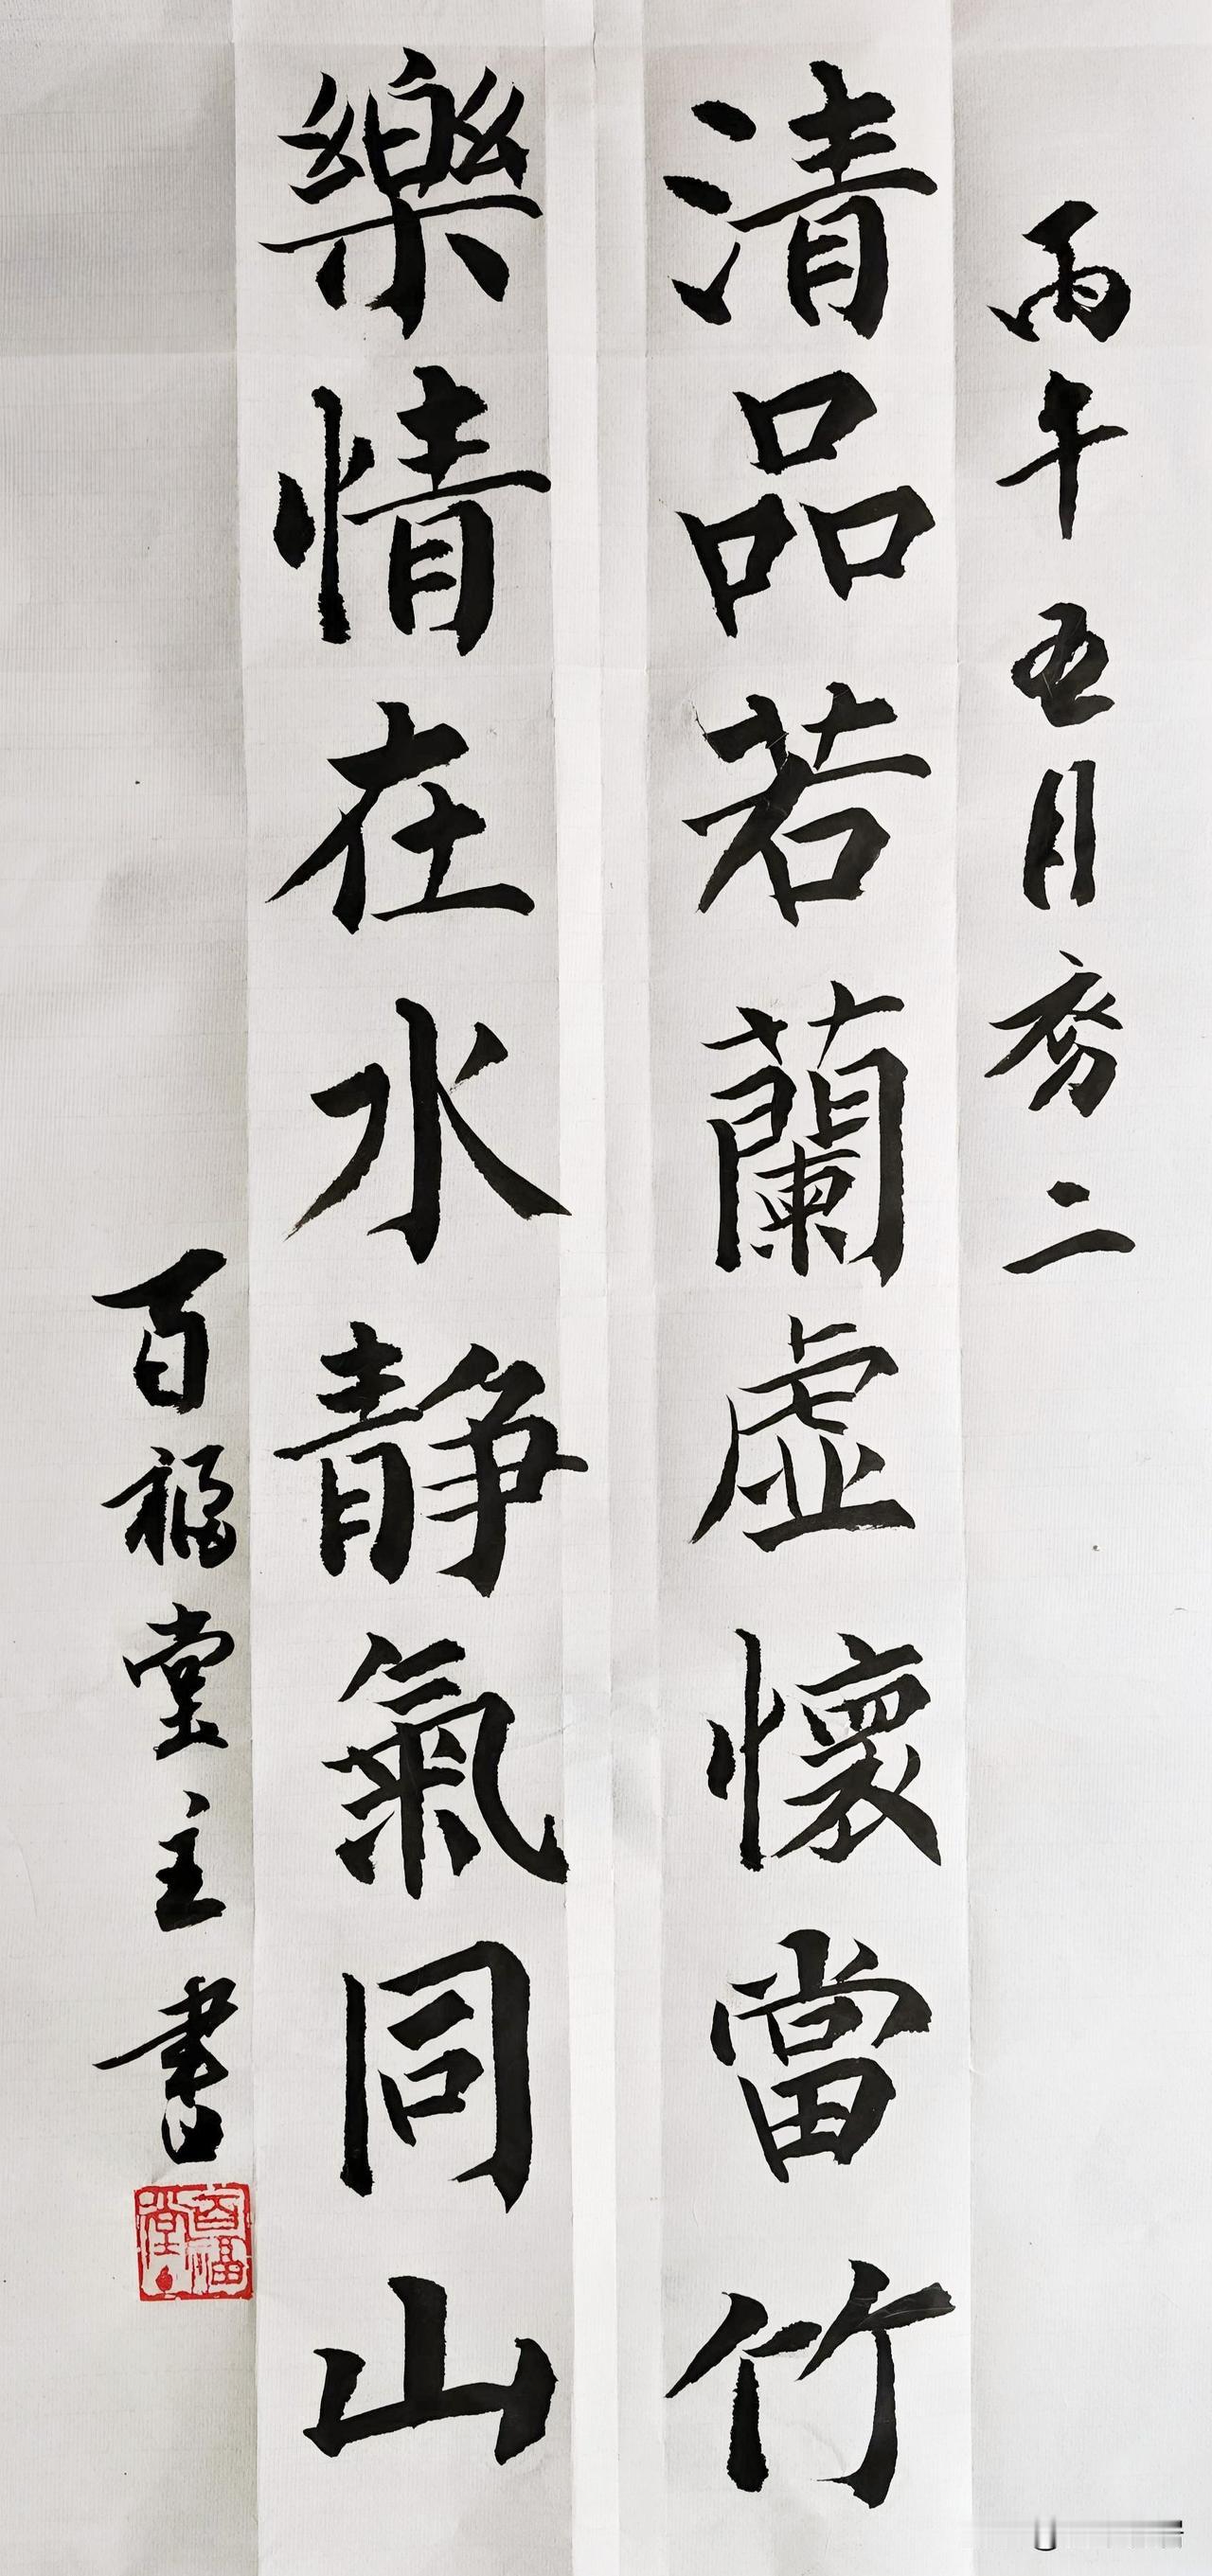 丙午五月初二
清品若蘭虚懷當竹
樂情在水静氣同山
百福堂主書
百福堂主